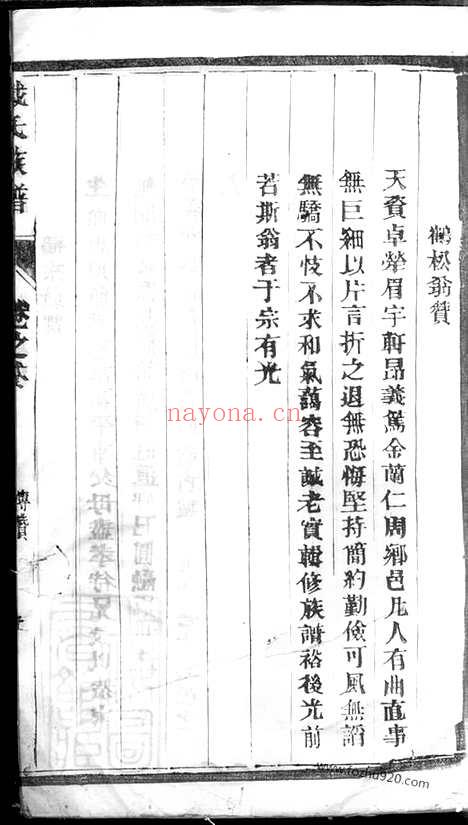 鶴松翁贊
天資卓犖眉宇軒昂義篤金蘭仁周鄉邑凡人有曲直事
無巨細以片言折之退無恐悔堅持簡約勤儉可風無謟
無驕不忮不求和氣藹容至誠老實輯修族譜裕後光前
若斯翁者于宗有光
氏族譜
卷之
傳贊
nayona.cn
www.fozhu920.com